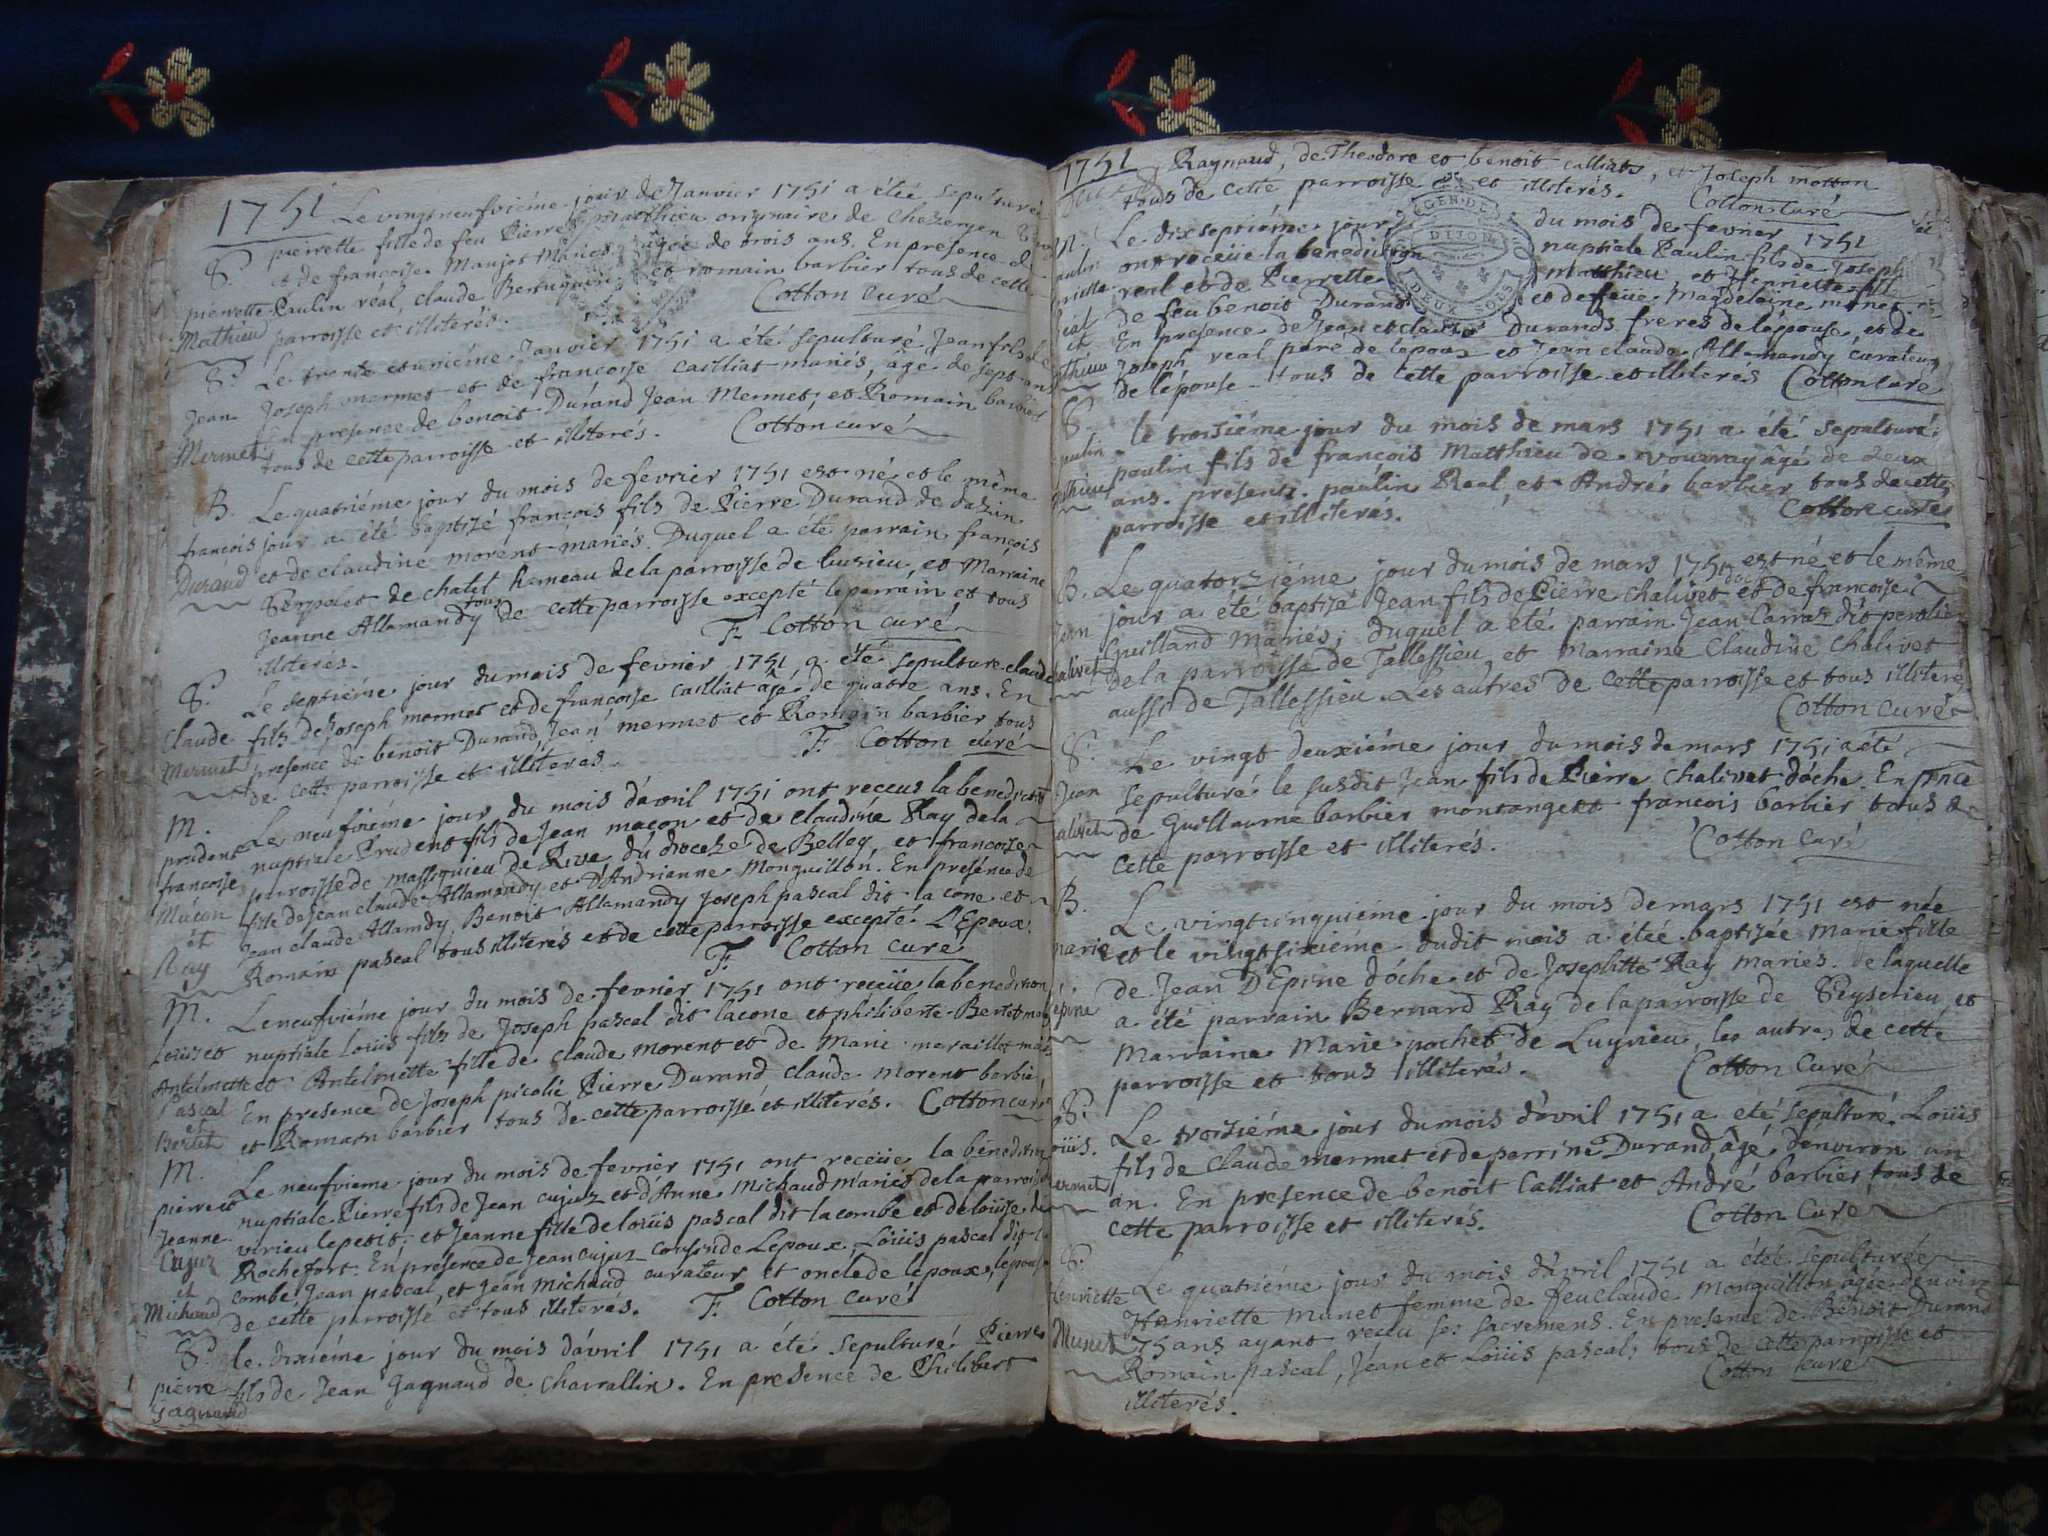 1751 Le vingt neufvième jour de Janvier 1751 a étée sepulturée
pierrette fille de feu Pierre Matthieu originaire de
S. et de françoise Maujot Mariés âgée de trois ans. En presence de
pierrette Paulin réal, claude et romain barbier tous de cette
Mathieu parroisse et illiterés. Cotton curé
S. Le trente et unième Janvier 1751 a été sepulturé Jean fils de
Jean Joseph mermet et de françoise cailliat mariés, âgé de sept ans
Mermet En presence de benoit Durand Jean Mermet, et Romain barbier
tous de cette parroisse et illiterés. Cotton curé
B. Le quatriéme jour du mois de fevrier 1751 est né et le même
françois jour a été baptizé françois fils de Pierre Durand de dazin
Durand et de claudine morent mariés. Duquel a été parrain françois
de chatel hameau de la parroisse de luirieu, et Marraine
Jeanne Allamandy tous de cette parroisse excepté le parrain et tous
illiterés. F. Cotton curé
S. Le septième jour du mois de fevrier 1751 a été sepulture claude
Claude fils de Joseph mermet et de françoise cailliat agé de quatre ans. En
Mermet presence de benoit Durand, Jean mermet et Romain barbier tous
de cette parroisse et illiterés. F. Cotton curé
M. Le neufvième jour du mois d'avril 1751 ont receus la benediction
prudent nuptiale Prudent fils de Jean maçon et de Claudine Ray de la
francoise parroisse de massignieu de Rive du diocese de Belley, et francoise
Maçon fille de Jean claude Allamandy et D'Andrianne Monguillon. En presence de
et Jean claude Allamdy, Benoit Allamandy Joseph pascal dit la cone et
Ray Romain pascal tous illiterés et de cette parroisse excepté L'Epoux.
F. Cotton curé
M. Le neufvième jour du mois de fevrier 1751 ont receüe la benediction
Loüis et nuptiale Loüis fils de Joseph pascal dit lacone et philiberte Bertet
Antelmette et Antelmette fille de claude morent et de Marie
Pascal En presence de Joseph picolié, Pierre Durand, claude morent barbié
et
Bertet et Romain barbier tous de cette parroisse et illiterés. Cotton curé
M. Le neufvieme jour du mois de fevrier 1751 ont receüe la benediction
pierre et nuptiale Pierre fils de Jean cujuz et d'Anne Michaud mariés de la parroisse
Jeanne virieu le petit, et Jeanne fille de loüis pascal dit la combe et de loüise de
Cujuz Rochefort. En presence de Jean cujuz cousin de Lepoux, Loüis pascal dit
et combe, Jean pascal, et Jean Michaud curateur et oncle de lepoux, lepouse
Michaud de cette parroisse et tous illiterés. F. Cotton curé
S. le dixiéme jour du mois d'avril 1751 a été sepulturé Pierre
pierre fils de Jean Gagnaud de Charrallin. En presence de Philibert
Gagnaud
1751 Raynaud, de Theodore et benoit calliats, et Joseph motton
tous de cette parroisse et illiterés. Cotton curé
M. Le dix septième jour du mois de fevrier 1751
ont receüe la benediction nuptiale Paulin fils de Joseph
real et de Pierrette Matthieu et Henriette
de feu benoit Durand et de feüe Magdelaine munet
et En presence de Jean et claude Durands freres de l'épouse, et de
Joseph real pere de lépoux et Jean claude Allamandy curateur
de lépouse tous de cette parroisse et illiterés Cotton curé
GEN. DE
DIJON
DEUX SOLS
S. le troisiéme jour du mois de mars 1751 a été sepulturé
paulin paulin fils de françois Matthieu de vouvray âgé de deux
ans. presents. paulin Real, et André barbier tous de cette
parroisse et illiteras. Cotton curé
B. Le quatorziéme jour du mois de mars 1751 est né et le même
Jean jour a été baptizé Jean fils de Pierre Chalivet et de francoise
Guilland Mariés, duquel a été parrain Jean Carraz dit perolier
de la parroisse de Tallessieu, et marraine Claudine Chalivet
aussi de Tallessieu. Les autres de cette parroisse et tous illiterés
Cotton curé
S. Le vingt deuxiéme jour du mois de mars 1751 a été
Jean sepulturé le susdit Jean fils de Pierre Chalivet dóche. En pnce
de Guillaume barbier montangert francois barbier tous de
cette parroisse et illiterés. Cotton Curé
B. Le vingt cinquiéme jour du mois de mars 1751 est née
Marie et le vingt sixiéme dudit mois a étée baptisée Marie fille
de Jean D'Epine dóche et de Josephtte Ray mariés. de laquelle
épine a été parrain Bernard Ray de la parroisse de Ceyserieu, et
Marraine Marie pochet de Luyrieu, les autres de cette
parroisse et tous illiterés. Cotton Curé
S. Le troisiéme jour du mois d'avril 1751 a eté sepulturé Loüis
fils de Claude mermet et de perrine Durand, âgé d'environ un
an. En presence de benoit Calliat et André barbier tous de
cette parroisse et illiterés. Cotton Curé
S. Le quatriéme jour du mois d'avril 1751 a étée sepulturée
Henriette Henriette Munet femme de feu claude Monguillon âgée d'environ
Munet 75 ans ayant recus ses sacremens. En presence de Benoit Durand
Romain pascal, Jean et Loüis pascals tous de cette parroisse et
illiterés. Cotton curé